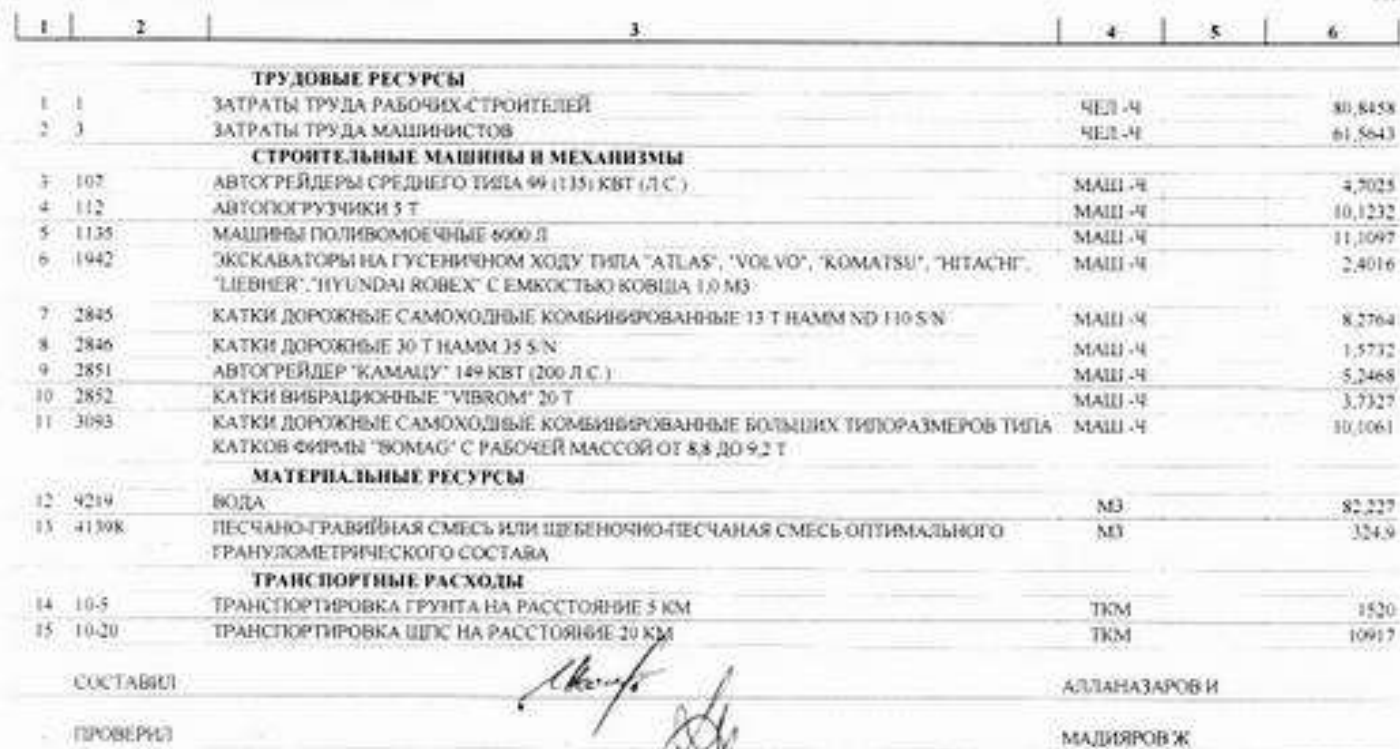 1 2 3 4 5 6
ТРУДОВЫЕ РЕСУРСЫ
1 1 ЗАТРАТЫ ТРУДА РАБОЧИХ-СТРОИТЕЛЕЙ ЧЕЛ -Ч 80,8458
2 3 ЗАТРАТЫ ТРУДА МАШИНИСТОВ ЧЕЛ -Ч 61,5643
СТРОИТЕЛЬНЫЕ МАШИНЫ И МЕХАНИЗМЫ
3 107 АВТОГРЕЙДЕРЫ СРЕДНЕГО ТИПА 99 (135) КВТ (Л С ) МАШ -Ч 4,5025
4 112 АВТОПОГРУЗЧИКИ 5 Т МАШ -Ч 10,1232
5 1135 МАШИНЫ ПОЛИВОМОЕЧНЫЕ 6000 Л МАШ -Ч 11,1097
6 1942 ЭКСКАВАТОРЫ НА ГУСЕНИЧНОМ ХОДУ ТИПА "ATLAS", "VOLVO", "KOMATSU", "HITACHI", МАШ -Ч 2,4016
"LIEBHER", "HYUNDAI ROBEX" С ЕМКОСТЬЮ КОВША 1,0 М3
7 2845 КАТКИ ДОРОЖНЫЕ САМОХОДНЫЕ КОМБИНИРОВАННЫЕ 13 Т HAMM ND 110 S/N МАШ -Ч 8,2764
8 2846 КАТКИ ДОРОЖНЫЕ 30 Т HAMM 35 S/N МАШ -Ч 1,5732
9 2851 АВТОГРЕЙДЕР "КАМАЦУ" 149 КВТ (200 Л С ) МАШ -Ч 5,2468
10 2852 КАТКИ ВИБРАЦИОННЫЕ "VIBROM" 20 Т МАШ -Ч 3,7327
11 3093 КАТКИ ДОРОЖНЫЕ САМОХОДНЫЕ КОМБИНИРОВАННЫЕ БОЛЬШИХ ТИПОРАЗМЕРОВ ТИПА МАШ -Ч 10,1061
КАТКОВ ФИРМЫ "BOMAG" С РАБОЧЕЙ МАССОЙ ОТ 8,8 ДО 9,2 Т
МАТЕРИАЛЬНЫЕ РЕСУРСЫ
12 9219 ВОДА М3 82,227
13 41398 ПЕСЧАНО-ГРАВИЙНАЯ СМЕСЬ ИЛИ ЩЕБЕНОЧНО-ПЕСЧАНАЯ СМЕСЬ ОПТИМАЛЬНОГО М3 324,9
ГРАНУЛОМЕТРИЧЕСКОГО СОСТАВА
ТРАНСПОРТНЫЕ РАСХОДЫ
14 10-5 ТРАНСПОРТИРОВКА ГРУНТА НА РАССТОЯНИЕ 5 КМ ТКМ 1520
15 10-20 ТРАНСПОРТИРОВКА ЩПС НА РАССТОЯНИЕ 20 КМ ТКМ 10917
СОСТАВИЛ АЛЛАНАЗАРОВ И
ПРОВЕРИЛ МАДИЯРОВ Ж